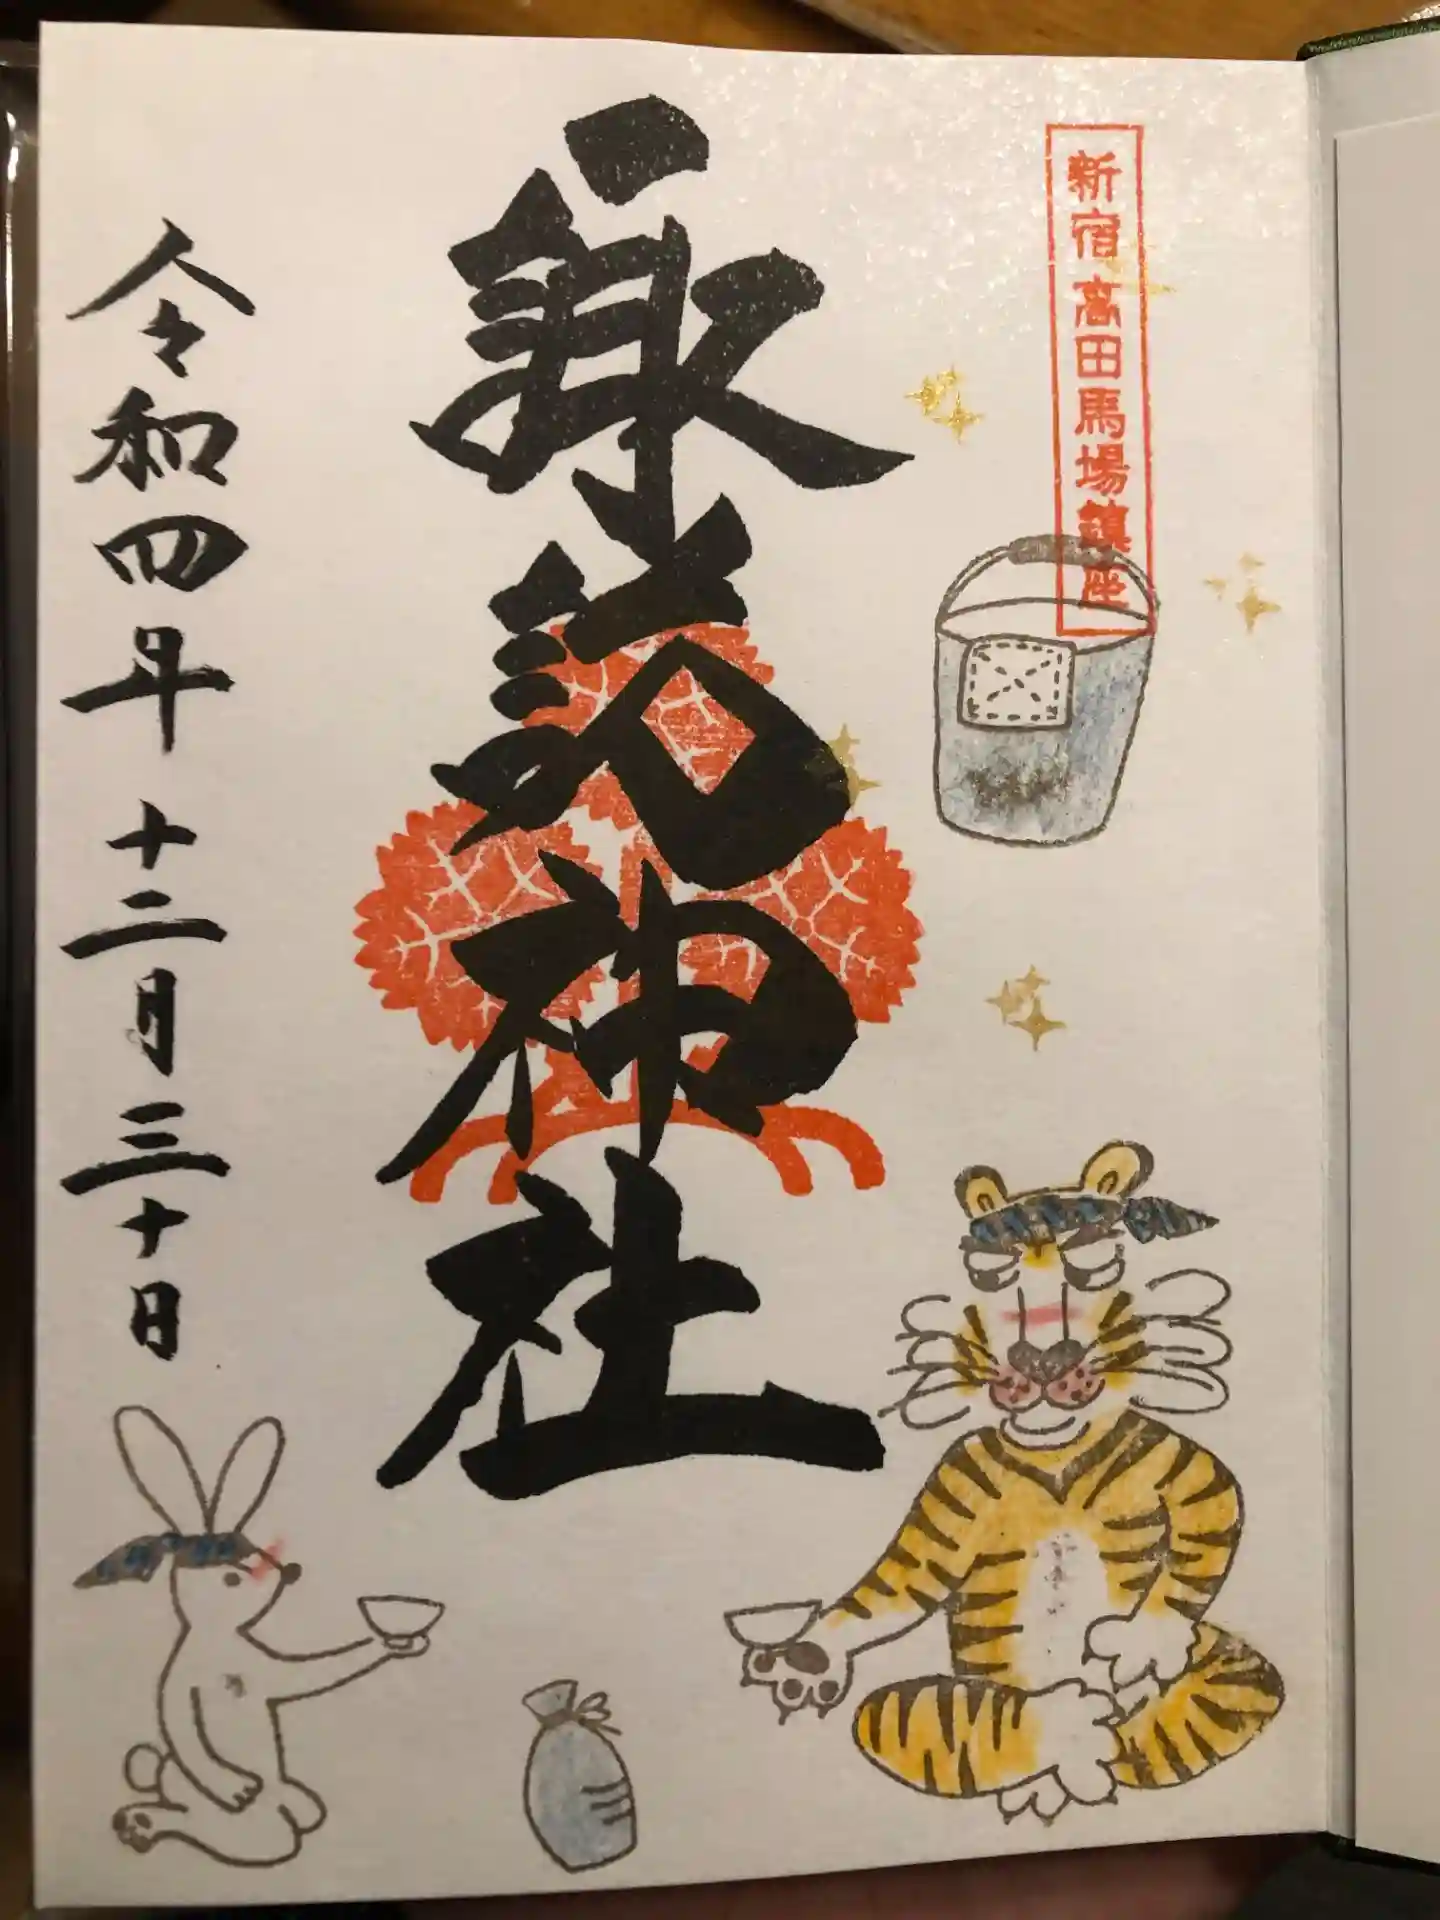 新宿高田馬場鎮座
諏訪神社
令和四年十二月三十日